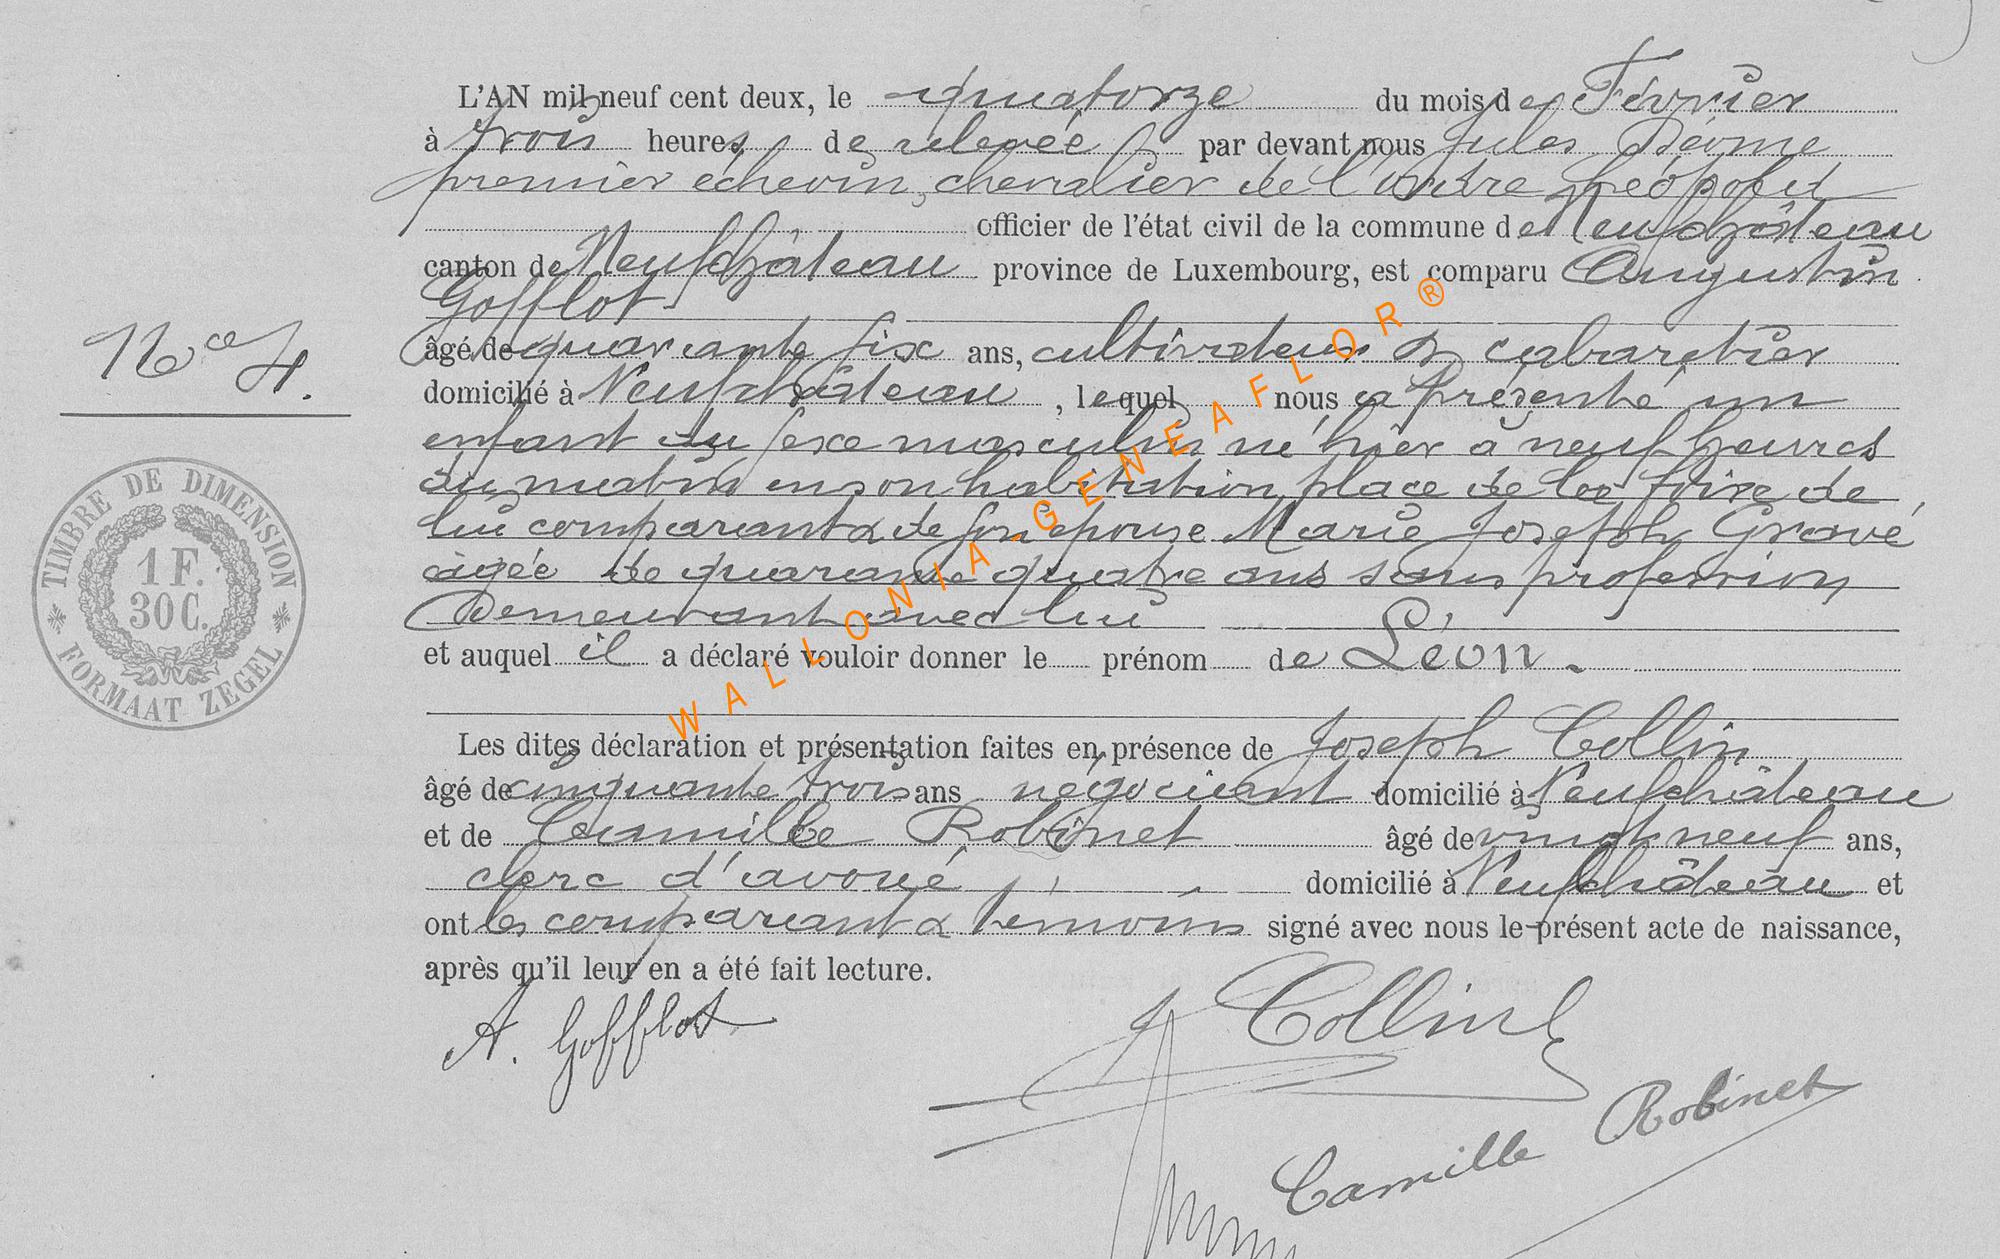 L'AN mil neuf cent deux, le quatorze du mois de Février
à trois heures de relevée par devant nous Jules
premier échevin, chevalier de l'ordre Léopold
officier de l'état civil de la commune de Neufchâteau
canton de Neufchâteau province de Luxembourg, est comparu Augustin
Gofflot
âgé de quarante six ans, cultivateur & cabaretier
domicilié à Neufchâteau, lequel nous a présenté un
enfant du sexe masculin né hier à neuf heures
du matin en son habitation, place de la foire de
lui comparant & de son épouse Marie Joseph Gravé
âgée de quarante quatre ans sans profession
Demeurant avec lui
et auquel il a déclaré vouloir donner le prénom de Léon.
Les dites déclaration et présentation faites en présence de Joseph Collin
âgé de cinquante trois ans négociant domicilié à Neufchâteau
et de Camille Robinet âgé de vingt neuf ans,
clerc d'avoué domicilié à Neufchâteau et
ont les comparant & témoins signé avec nous le présent acte de naissance,
après qu'il leur en a été fait lecture.
No 4.
TIMBRE DE DIMENSION
1 F.
30 C.
FORMAAT ZEGEL
A. Gofflot
J Collin
Camille Robinet
WALLONIA-GENEAFLOR®